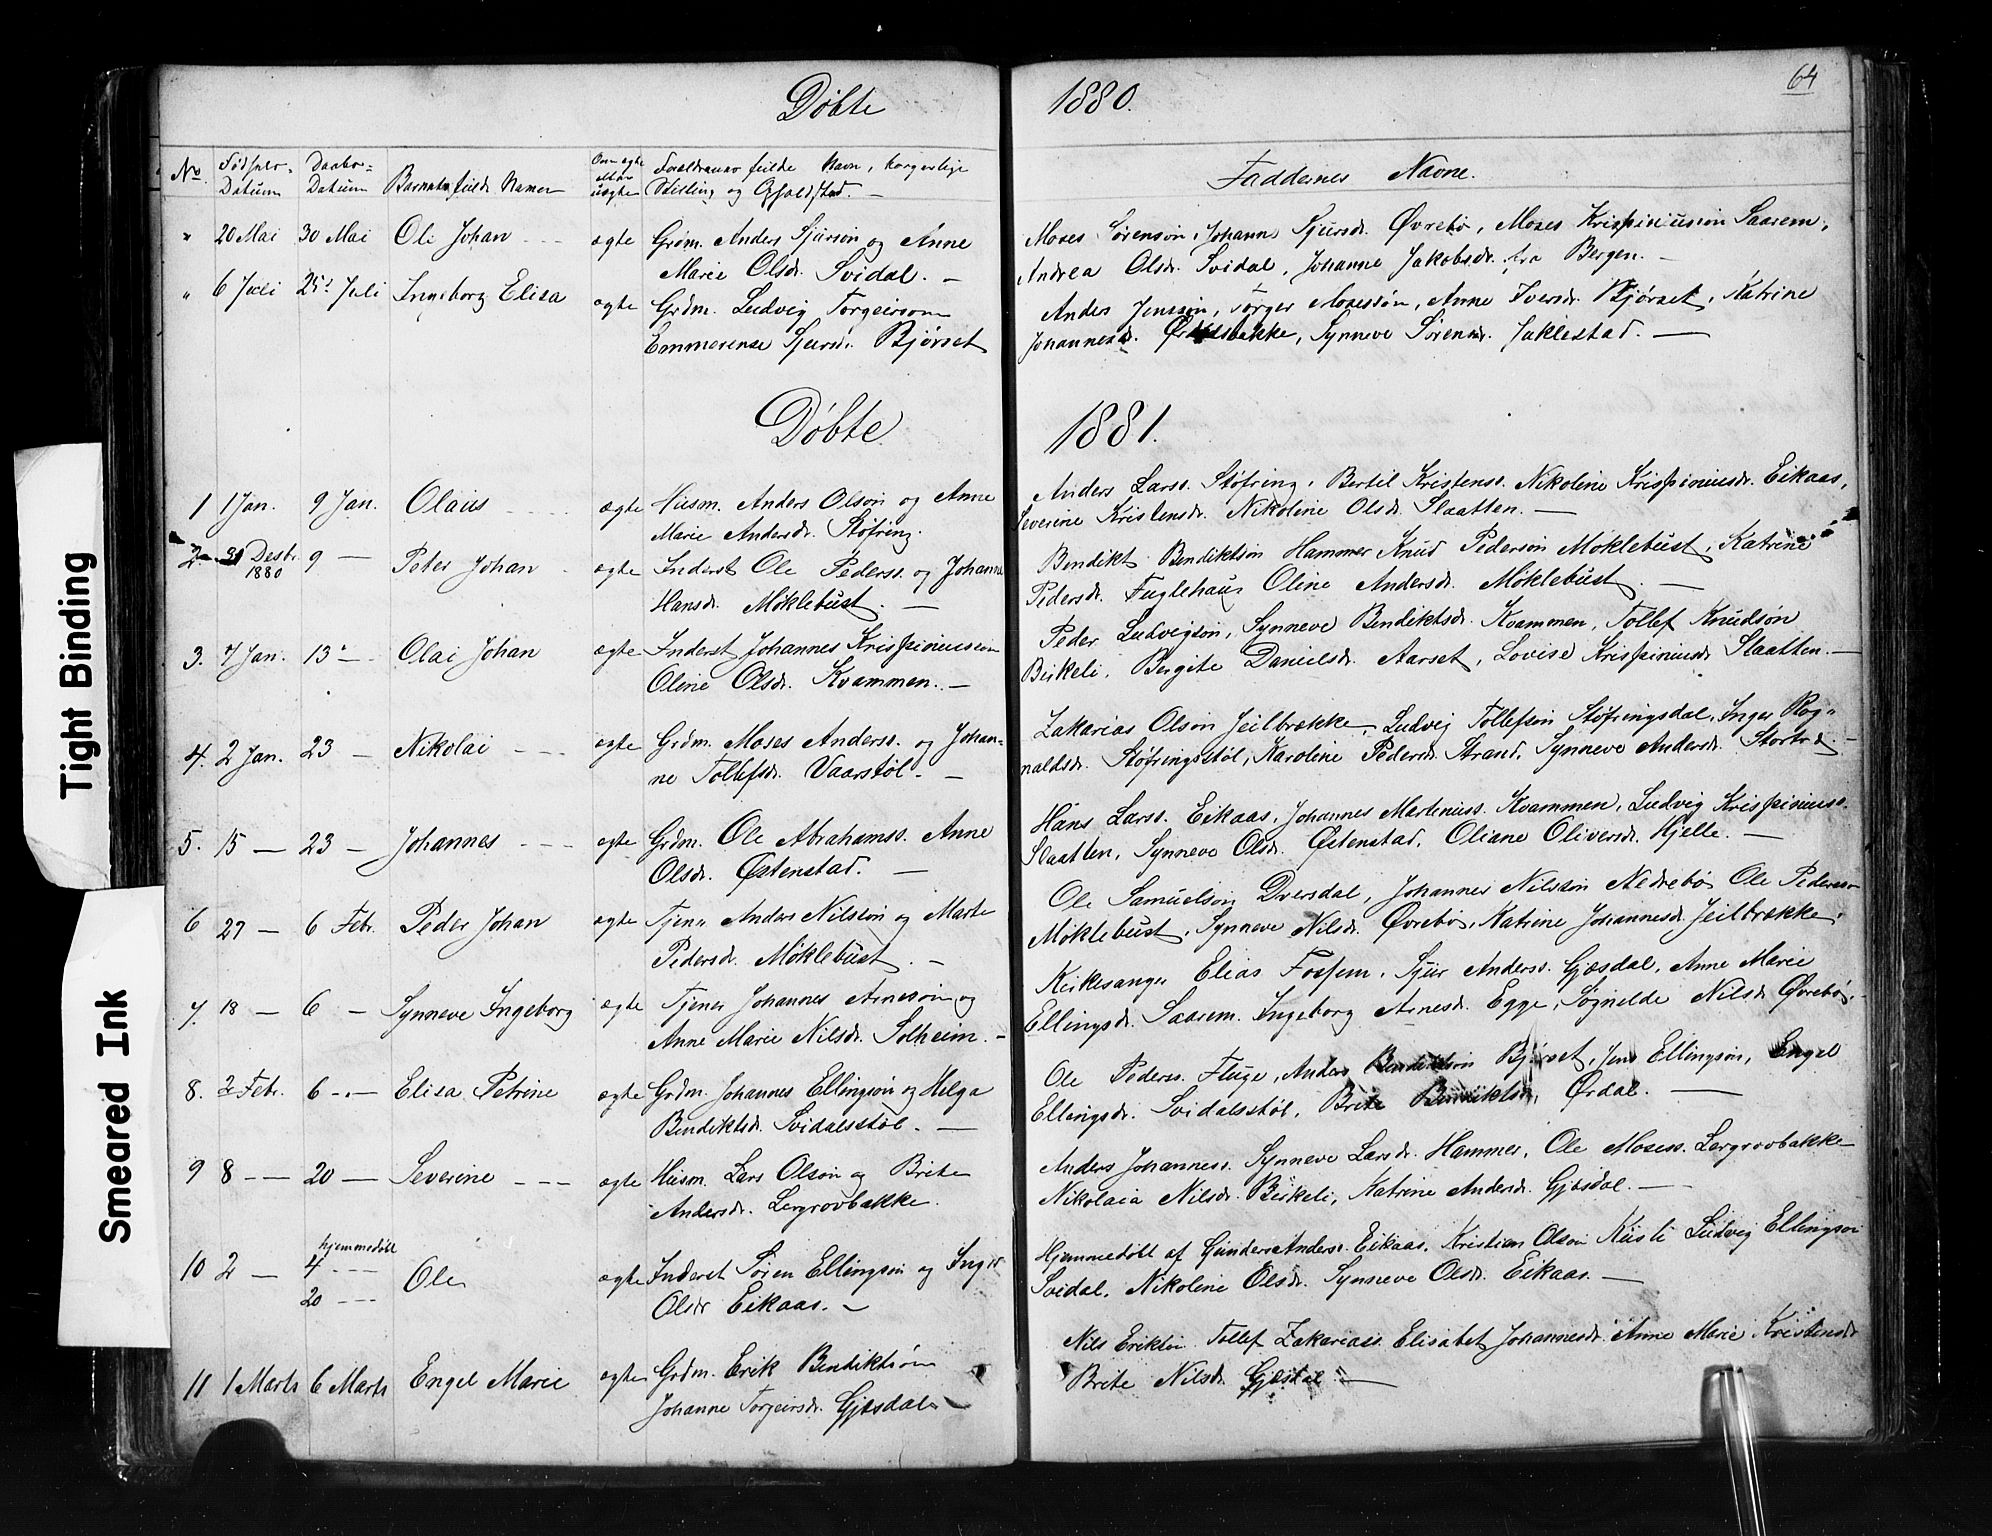 Døbte 1880.
64
No. Fødsels-Datum Daabs-Datum Barnets fulde Navn Om ægte eller uægte Forældrenes fulde Navn, borgerlige Stilling og Opholdssted. Faddernes Navne.
" 20 Mai 30 Mai Ole Johan ægte Grdm. Anders Sjurson og Anne
Marie Olsdr. Svidal. —
Moses Sørenson, Johanne Sjursdr. Øvrebø, Moses Krispiniusson Saarem,
Andrea Olsdr. Svidal, Johanne Jakobsdr. fra Bergen. —
" 6 Juli 25 Juli Ingeborg Elisa ægte Grdm. Ludvig Torgeirson
Emmerense Sjursd. Bjørset
Anders Jensson, Torger Mosessøn, Anne Iversdr. Bjørset, Katrine
Johannesd. Ørdalsbakke, Synneve Sørensdr. Jaklestad. —
Døbte 1881.
1 1 Jan. 9 Jan. Olaus ægte Husm. Anders Olson og Anne
Marie Andersdr. Støfring.
Anders Larss. Støfring, Bertil Kristenss. Nikoline Krispiniusdr. Eikaas,
Severine Kristensdr. Nikoline Olsdr. Slaatten. —
2 31 Desbr. 1880 9 — Peter Johan ægte Inderst Ole Pederss. og Johanne
Hansdr. Møklebust. —
Bendikt Bendiktson Hammer Knud Pederson Møklebust, Katrine
Pedersdr. Fuglehaug Oline Andersdr. Møklebust. —
3. 7 Jan. 13 — Olai Johan ægte Inderst Johannes Krispiniusson
Oline Olsdr. Kvammen. —
Peder Ludvigson, Synneve Bendiktsdr. Kvammen, Tollef Knudson
Birkeli, Bergite Danielsdr. Aarset, Lovise Krispiniusdr Slaatten. —
4. 2 Jan. 23 — Nikolai ægte Grdm. Moses Anderss. og Johan-
ne Tollefsdr. Vaarstøl. —
Zakarias Olson Jeilbrække, Ludvig Tollefson Støfringsdal, Inger Rog-
naldsdr. Støfringsstøl, Karoline Pedersdr. Strand, Synneve Andersdr.
5. 15 — 23 — Johannes ægte Grdm. Ole Abrahamss. Anne
Olsdr. Østenstad. —
Hans Larss. Eikaas, Johannes Martinuss. Kvammen, Ludvig Krispiniuss.
Slaatten, Synneve Olsdr. Østenstad, Oliane Oliversdr. Hjelle. —
6 27 — 6 Febr. Peder Johan ægte Tjen. Anders Nilsson og Marte
Pedersdr. Møklebust. —
Ole Samuelson Dversdal, Johannes Nilsson Nedrebø Ole Pederson
Møklebust, Synneve Nilsdr. Øvrebø, Katrine Johannesdr. Jeilbrække.
7. 18 — 6 — Synneve Ingeborg ægte Tjener Johannes Arneson og
Anne Marie Nilsdr. Solheim. —
Kirkesanger Elias Fossem, Sjur Anderss. Gjesdal, Anne Marie
Ellingsdr. Saarem. Ingeborg Arnesd. Egge, Sognelde Nilsd. Øvrebø. —
8. 2 Febr. 6 — Elisa Petrine ægte Grdm. Johannes Ellingson og Helga
Bendiktsdr. Svidalsstøl. —
Ole Pederss. Fluge, Anders Bendiktson Bjørset, Jens Ellingson, Engel
Ellingsdr. Svidalsstøl, Brite Bendiktsdr. Ørdal. —
9 8 — 20 — Severine ægte Husm. Lars Olson og Brite
Andersdr. Lergrovbakke.
Anders Johanness. Synneve Larsdr. Hammer, Ole Mosess. Lergrovbakke
Nikolaia Nilsdr. Birkeli, Katrine Andersdr. Gjesdal. —
10 2 — hjemmedøbt 4 — 20 — Ole ægte Inderst Søren Ellingson og Inger
Olsdr Eikaas. —
Hjemmedøbt af Gunder Anderss. Eikaas, Kristian Olson Ludvig Ellingson
Svidal, Nikoline Olsdr. Synneve Olsdr. Eikaas. —
11 1 Marts 6 Marts Engel Marie ægte Grdm. Erik Bendiktson
Johanne Torgeirsdr. Gjesdal. —
Nils Erikson Tollef Zakariass. Elisabet Johannesdr. Anne Marie Kristensdr
Brite Nilsdr. Gjesdal. —
Tight Binding
Smeared Ink